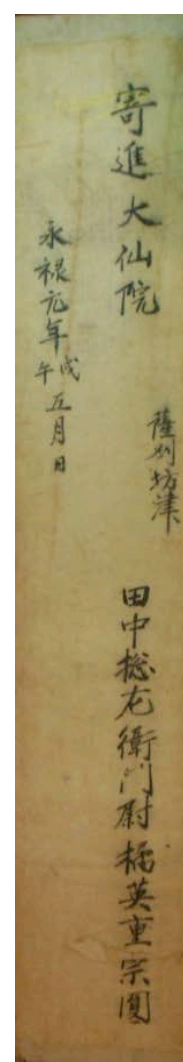 寄進大仙院
薩刕坊津
田中総左衛門尉橘英重宗圓
永禄元年戊午五月日